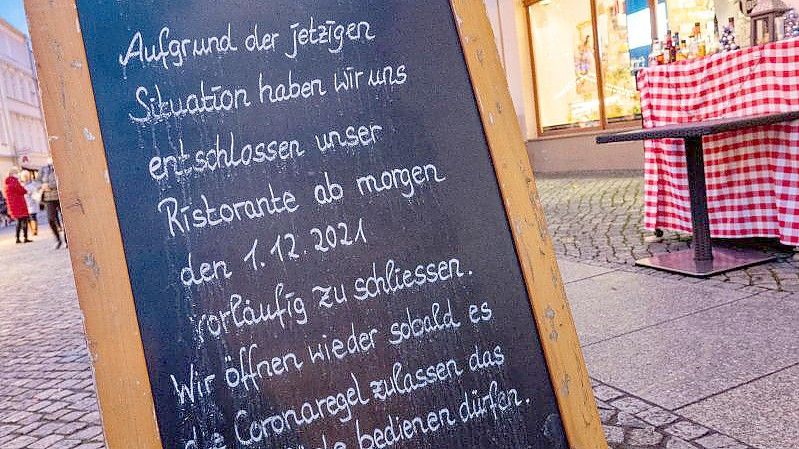 Aufgrund der jetzigen
Situation haben wir uns
entschlossen unser
Ristorante ab morgen
den 1.12.2021
vorläufig zu schliessen.
Wir öffnen wieder sobald es
die Coronaregel zulassen das
bedienen dürfen.